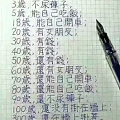 3歲,不尿褲子;
5歲,能自己吃飯;
18歲,能自己開車;
20歲,有女朋友;
30歲,有錢;
40歲,有錢;
50歲,還有錢;
60歲,還有女朋友;
70歲,還能自己開車;
80歲,還能自己吃飯;
90歲,還不尿褲子;
100歲,還沒有掛在牆上;